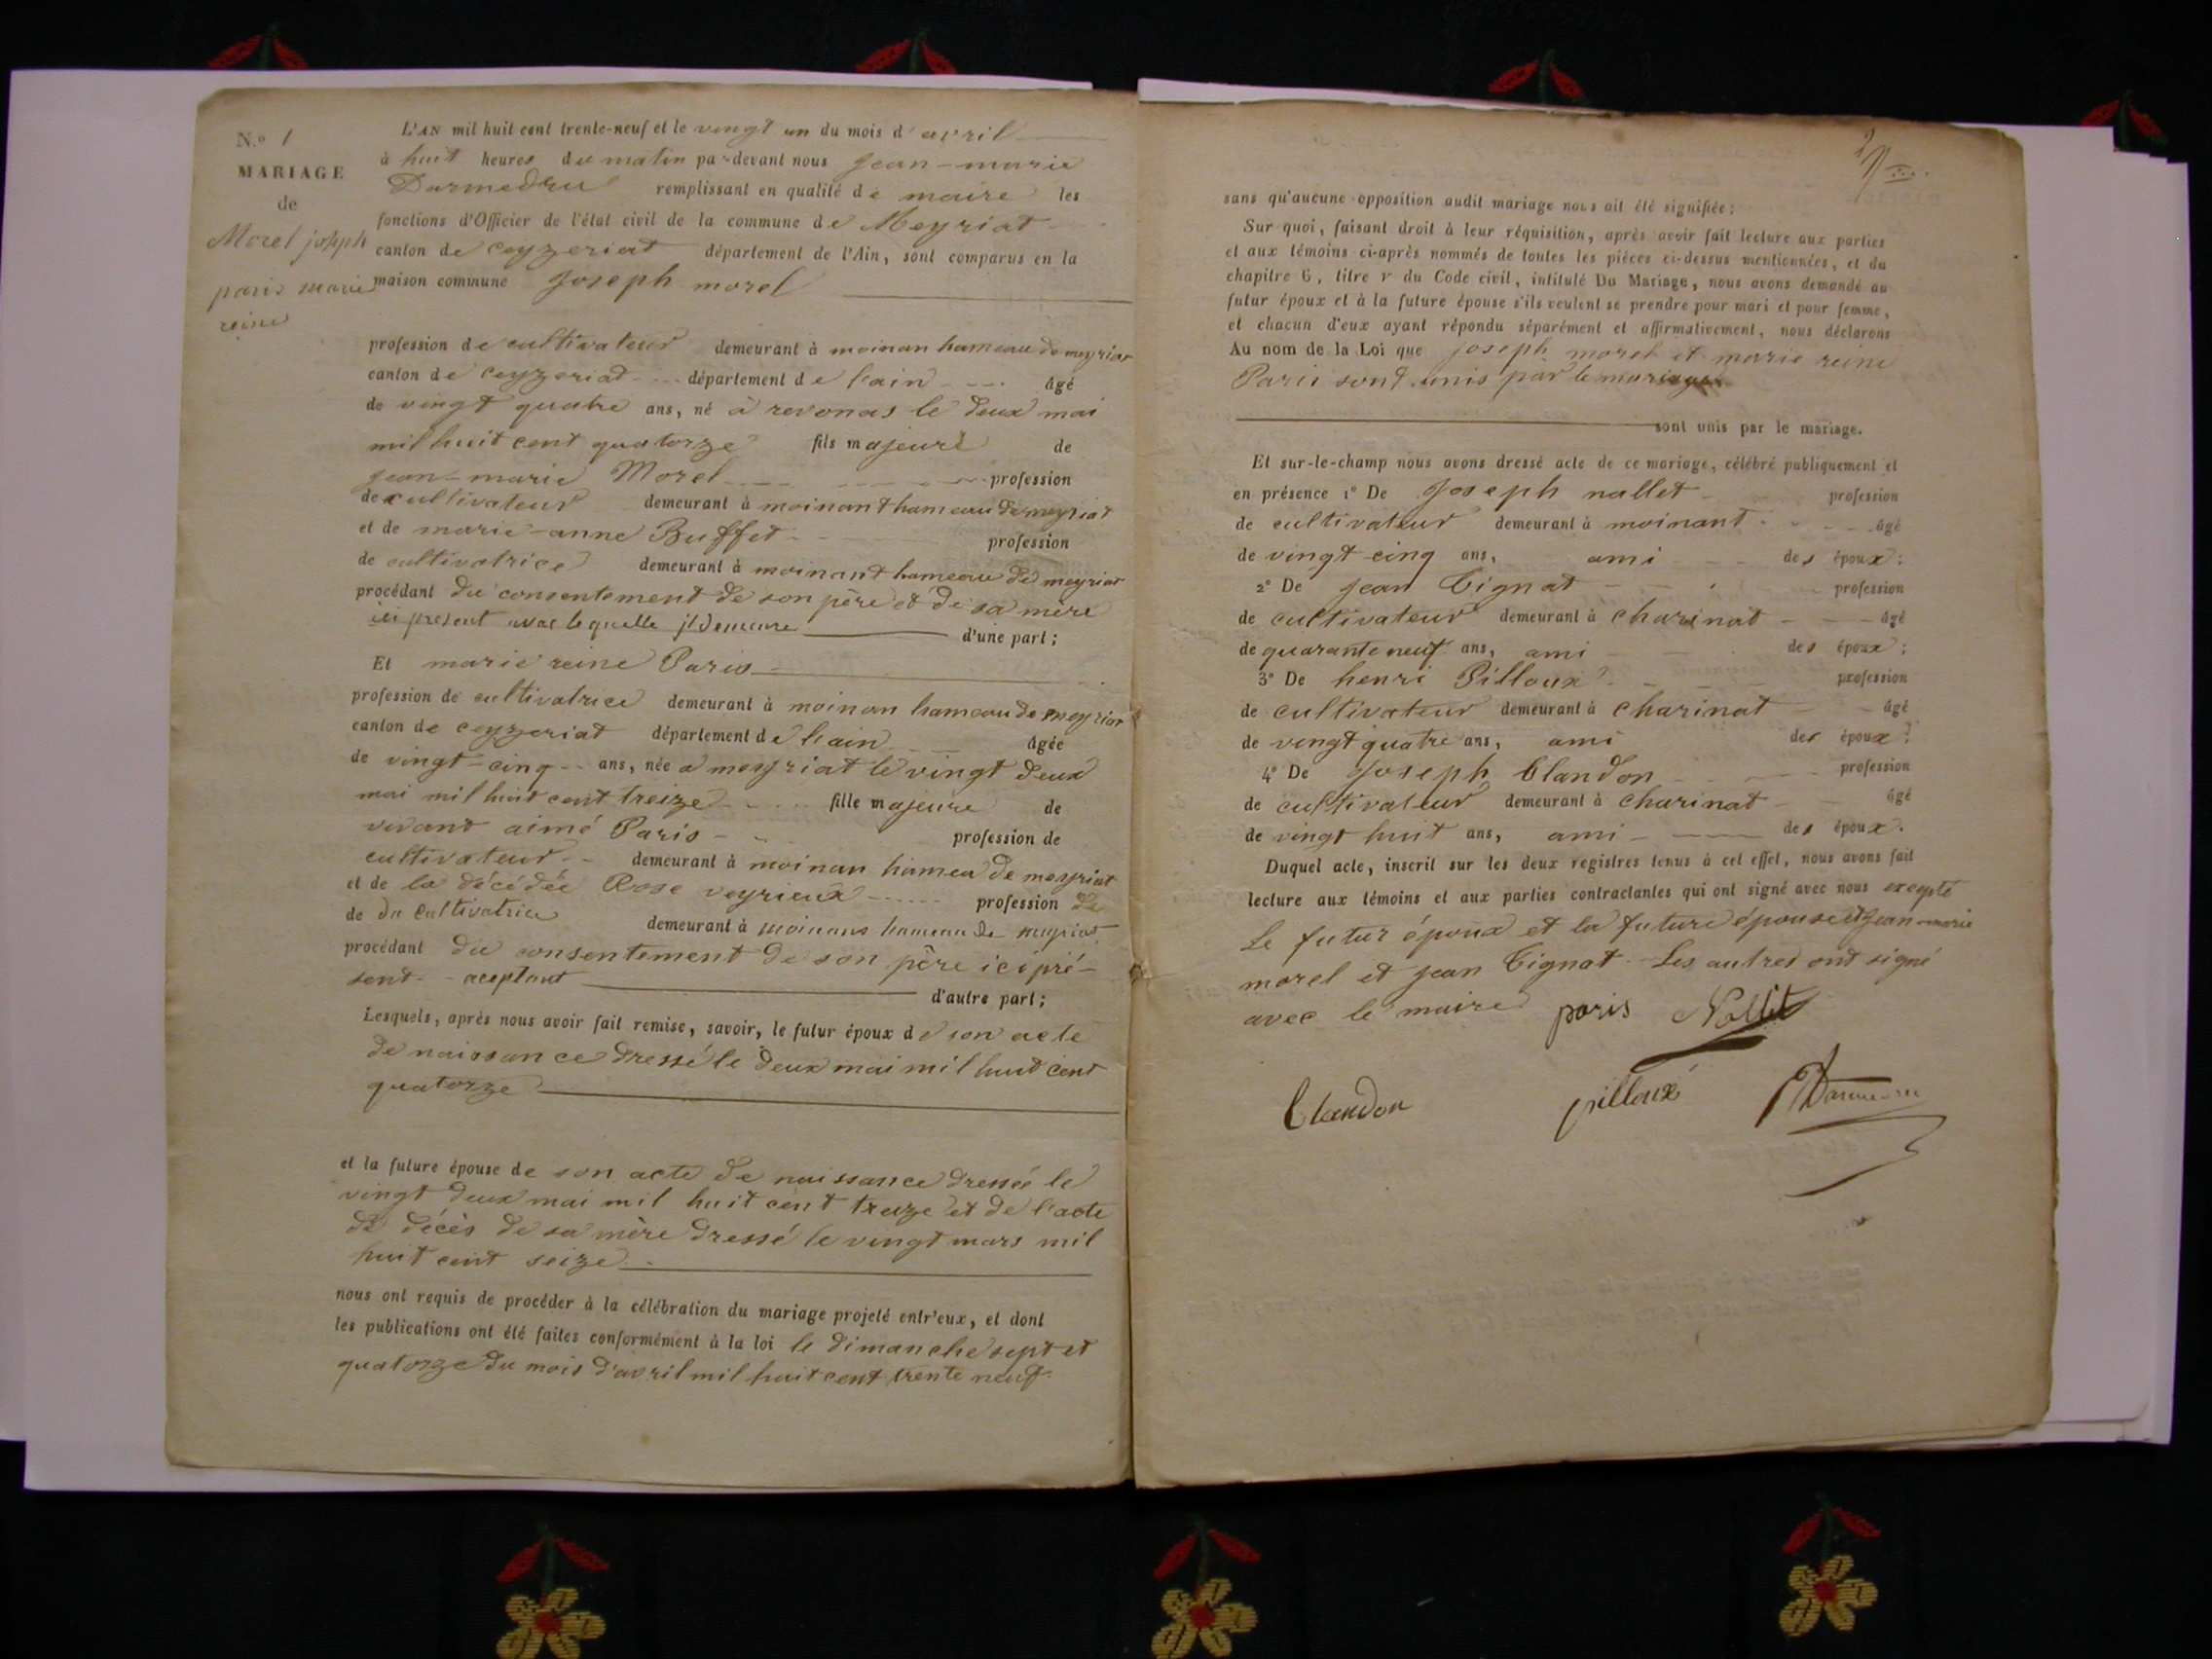 N.o 1
MARIAGE
de
Morel joseph
paris marie
reine
L'AN mil huit cent trente-neuf et le vingt un du mois d'avril
à huit heures du matin par-devant nous Jean-marie
Darmedru remplissant en qualité de maire les
fonctions d'Officier de l'état civil de la commune de Meyriat
canton de ceyzeriat département de l'Ain, sont comparus en la
maison commune Joseph morel
profession de cultivateur demeurant à moinan hameau de meyriat
canton de Ceyzeriat département de l'ain âgé
de vingt quatre ans, né à revonas le deux mai
mil huit cent quatorze fils majeure de
jean-marie Morel profession
de cultivateur demeurant à moinant hameau de meyriat
et de marie-anne Buffet profession
de cultivatrice demeurant à moinant hameau de meyriat
procédant du consentement de son père et de sa mère
ici présent avec lequelle il demeure d'une part;
Et marie reine Paris
profession de cultivatrice demeurant à moinan hameau de meyriat
canton de ceyzeriat département de l'ain âgée
de vingt-cinq ans, née a meyriat le vingt deux
mai mil huit cent treize fille majeure de
vivant aimé Paris profession de
cultivateur demeurant à moinan hamea de meyriat
et de la décédée Rose veyrieux profession de
de du cultivatrice demeurant à moinans hameau de meyriat
procédant du consentement de son père ici pré-
sent aceptant d'autre part;
Lesquels, après nous avoir fait remise, savoir, le futur époux de son acte
de naissance dressé le deux mai mil huit cent
quatorze
et la future épouse de son acte de naissance dressée le
vingt deux mai mil huit cent treize et de l'acte
de décès de sa mère dressé le vingt mars mil
huit cent seize
nous ont requis de procéder à la célébration du mariage projeté entr'eux, et dont
les publications ont été faites conformément à la loi le dimanche sept et
quatorze du mois d'avril mil huit cent trente neuf
sans qu'aucune opposition audit mariage nous ait été signifiée;
Sur quoi, faisant droit à leur réquisition, après avoir fait lecture aux parties
et aux témoins ci-après nommés de toutes les pièces ci-dessus mentionnées, et du
chapitre 6, titre v du Code civil, intitulé Du Mariage, nous avons demandé au
futur époux et à la future épouse s'ils veulent se prendre pour mari et pour femme,
et chacun d'eux ayant répondu séparément et affirmativement, nous déclarons
Au nom de la Loi que joseph morel et marie reine
Paris sont unis par le mariage
sont unis par le mariage.
Et sur-le-champ nous avons dressé acte de ce mariage, célébré publiquement et
en présence 1° De Joseph nallet profession
de cultivateur demeurant à moinant âgé
de vingt cinq ans, ami des époux;
2° De jean Tignat profession
de cultivateur demeurant à charinat âgé
de quarante neuf ans, ami des époux;
3° De henri Pilloux profession
de cultivateur demeurant à charinat âgé
de vingt quatre ans, ami des époux;
4° De Joseph Clandon profession
de cultivateur demeurant à charinat âgé
de vingt huit ans, ami des époux.
Duquel acte, inscrit sur les deux registres tenus à cet effet, nous avons fait
lecture aux témoins et aux parties contractantes qui ont signé avec nous excepté
Le futur époux et la future épouse et jean marie
morel et jean Tignat Les autres ont signé
avec le maire paris Nallet
Clandon pilloux Darmedru